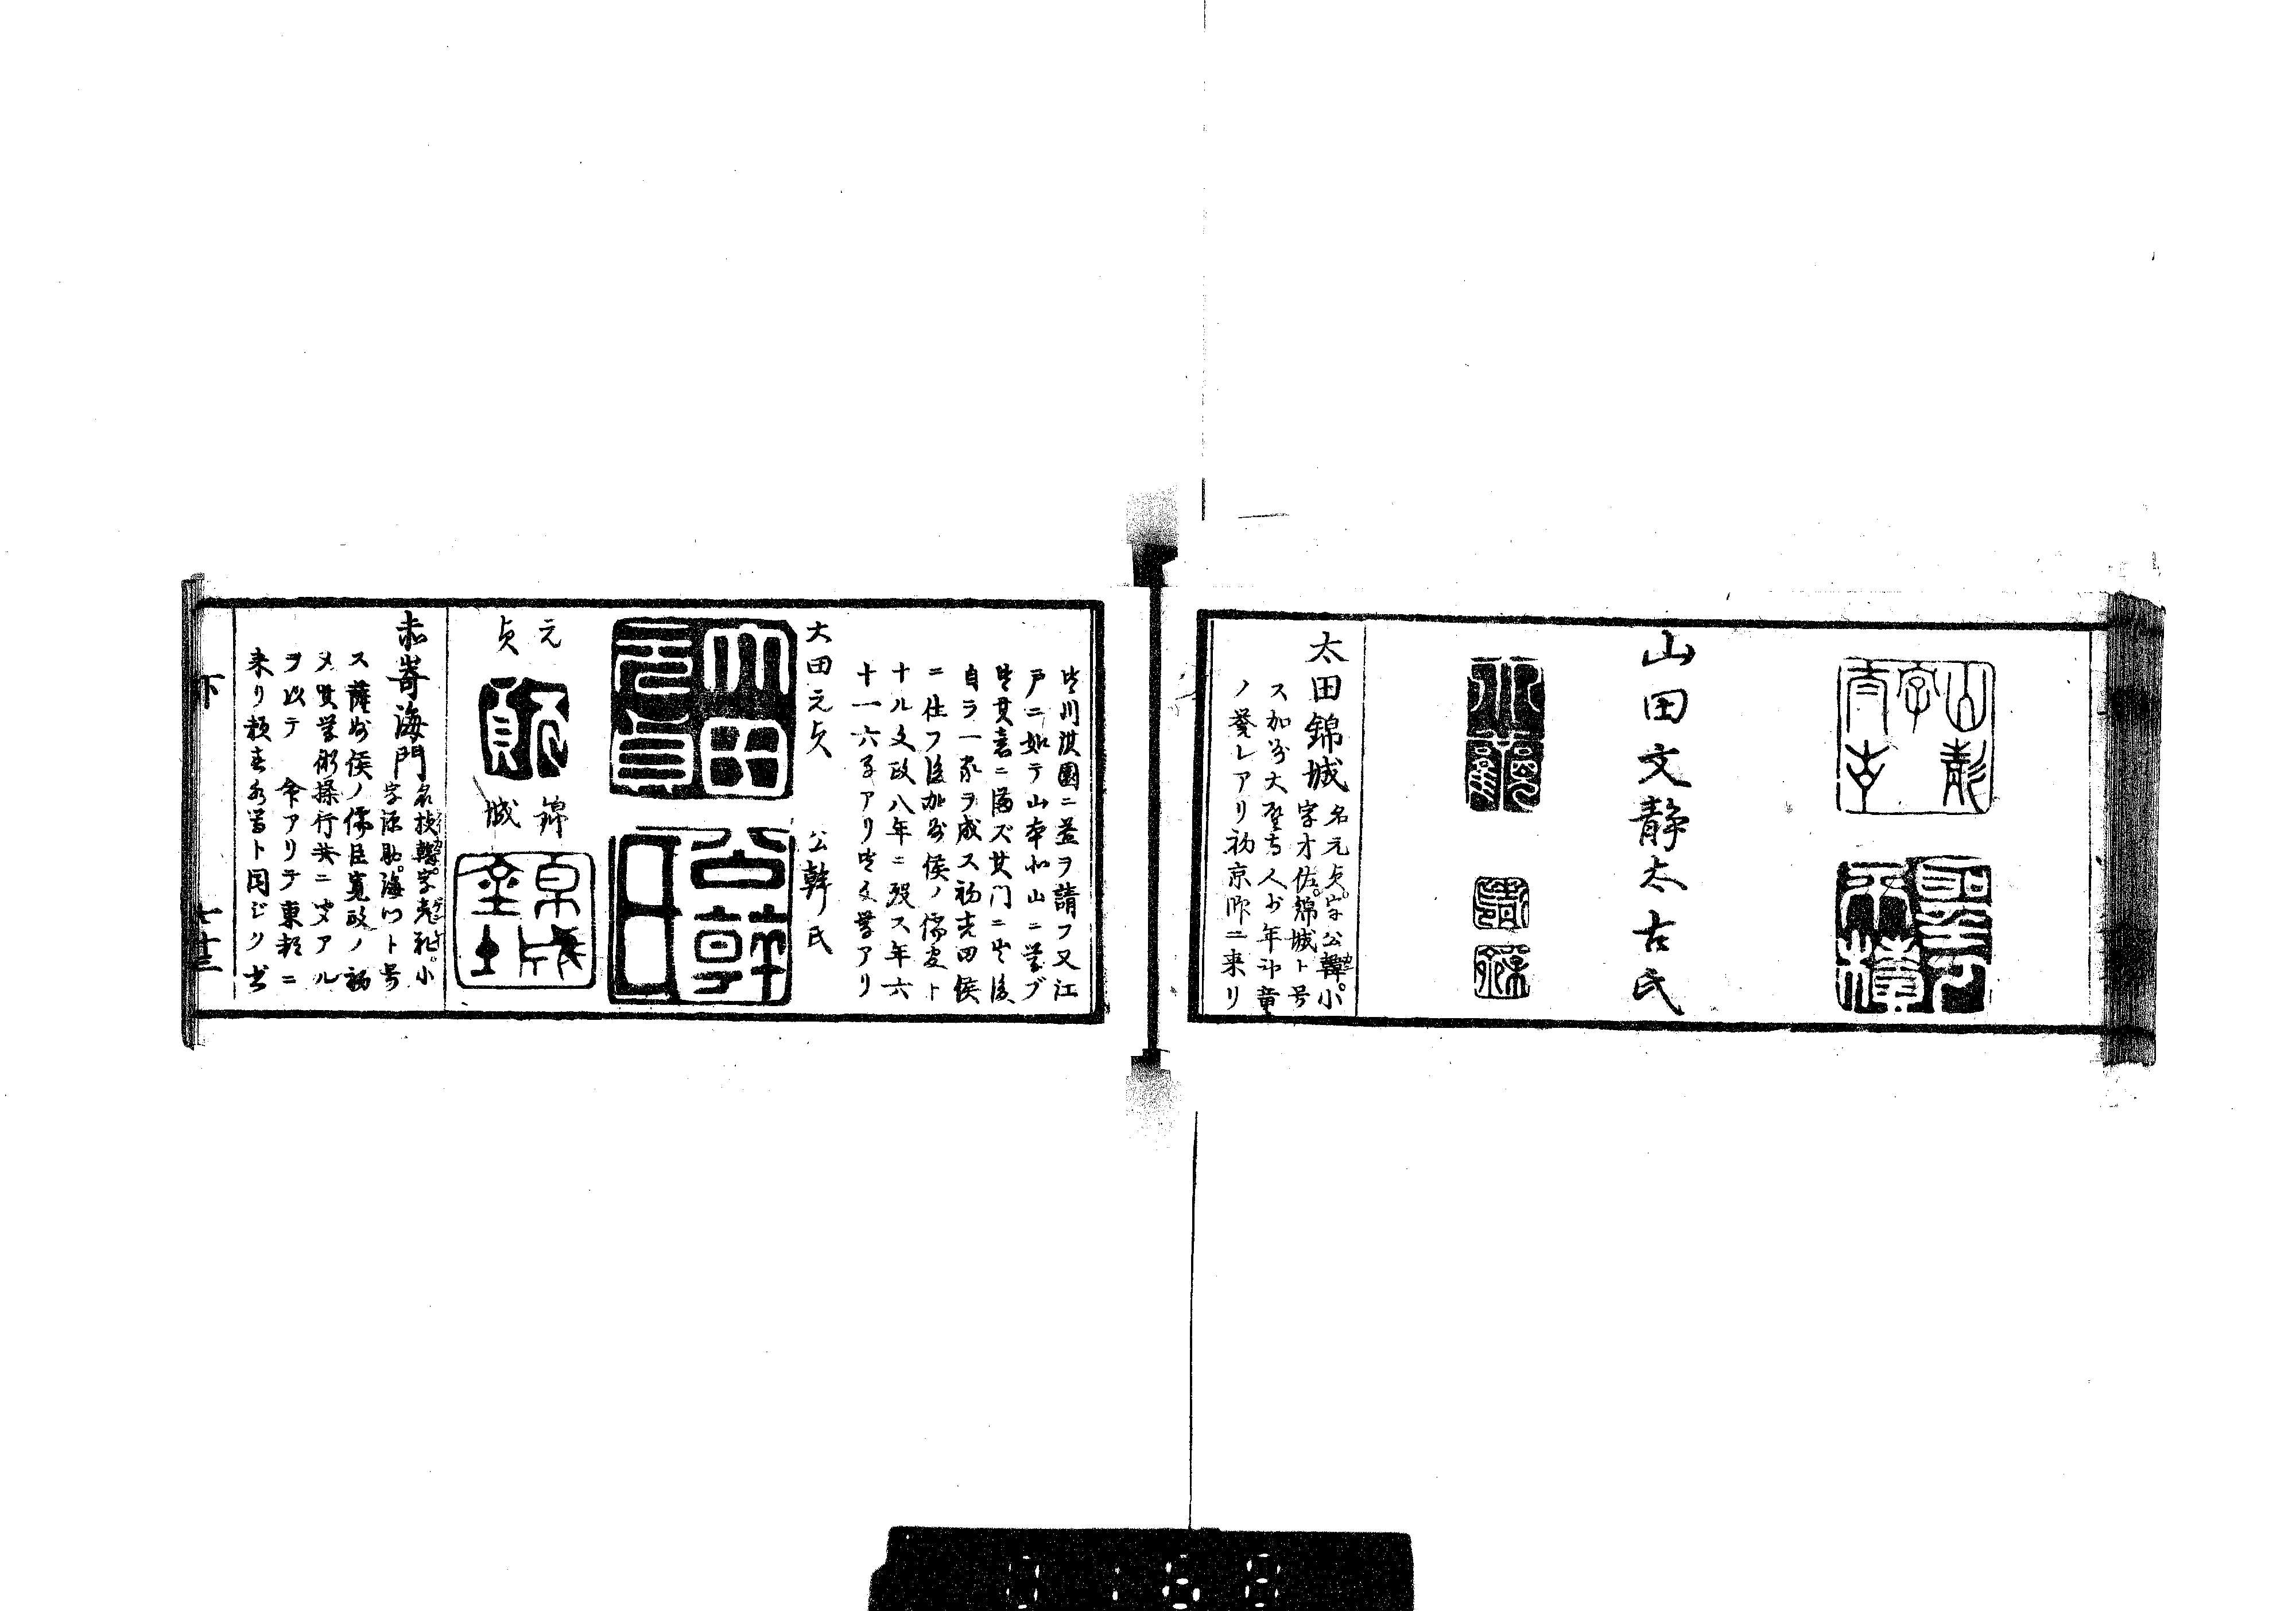 山田文静太古氏
太田錦城
名元貞。字公幹。小
字才佐。錦城ト号
ス加州大聖寺人少年ヨリ
ノ誉レアリ初京師ニ来リ
皆川淇園ニ益ヲ請フ又江
戸ニ如テ山本北山ニ学ブ
皆其意ニ満ズ其門ニ出後
自ラ一家ヲ成ス初吉田侯
ニ仕フ後加州侯ノ儒官ト
ナル文政八年ニ殁ス年六
十一六子アリ皆文誉アリ
大田元貞
公幹氏
元貞
錦城
赤嵜海門
名楨幹。字彦礼。小
字源助。海門ト号
ス薩州侯ノ儒臣寛政ノ初
メ其学術操行共ニ聞アル
ヲ以テ 命アリテ東都ニ
来リ頼春水等ト同ジク
下
七十三